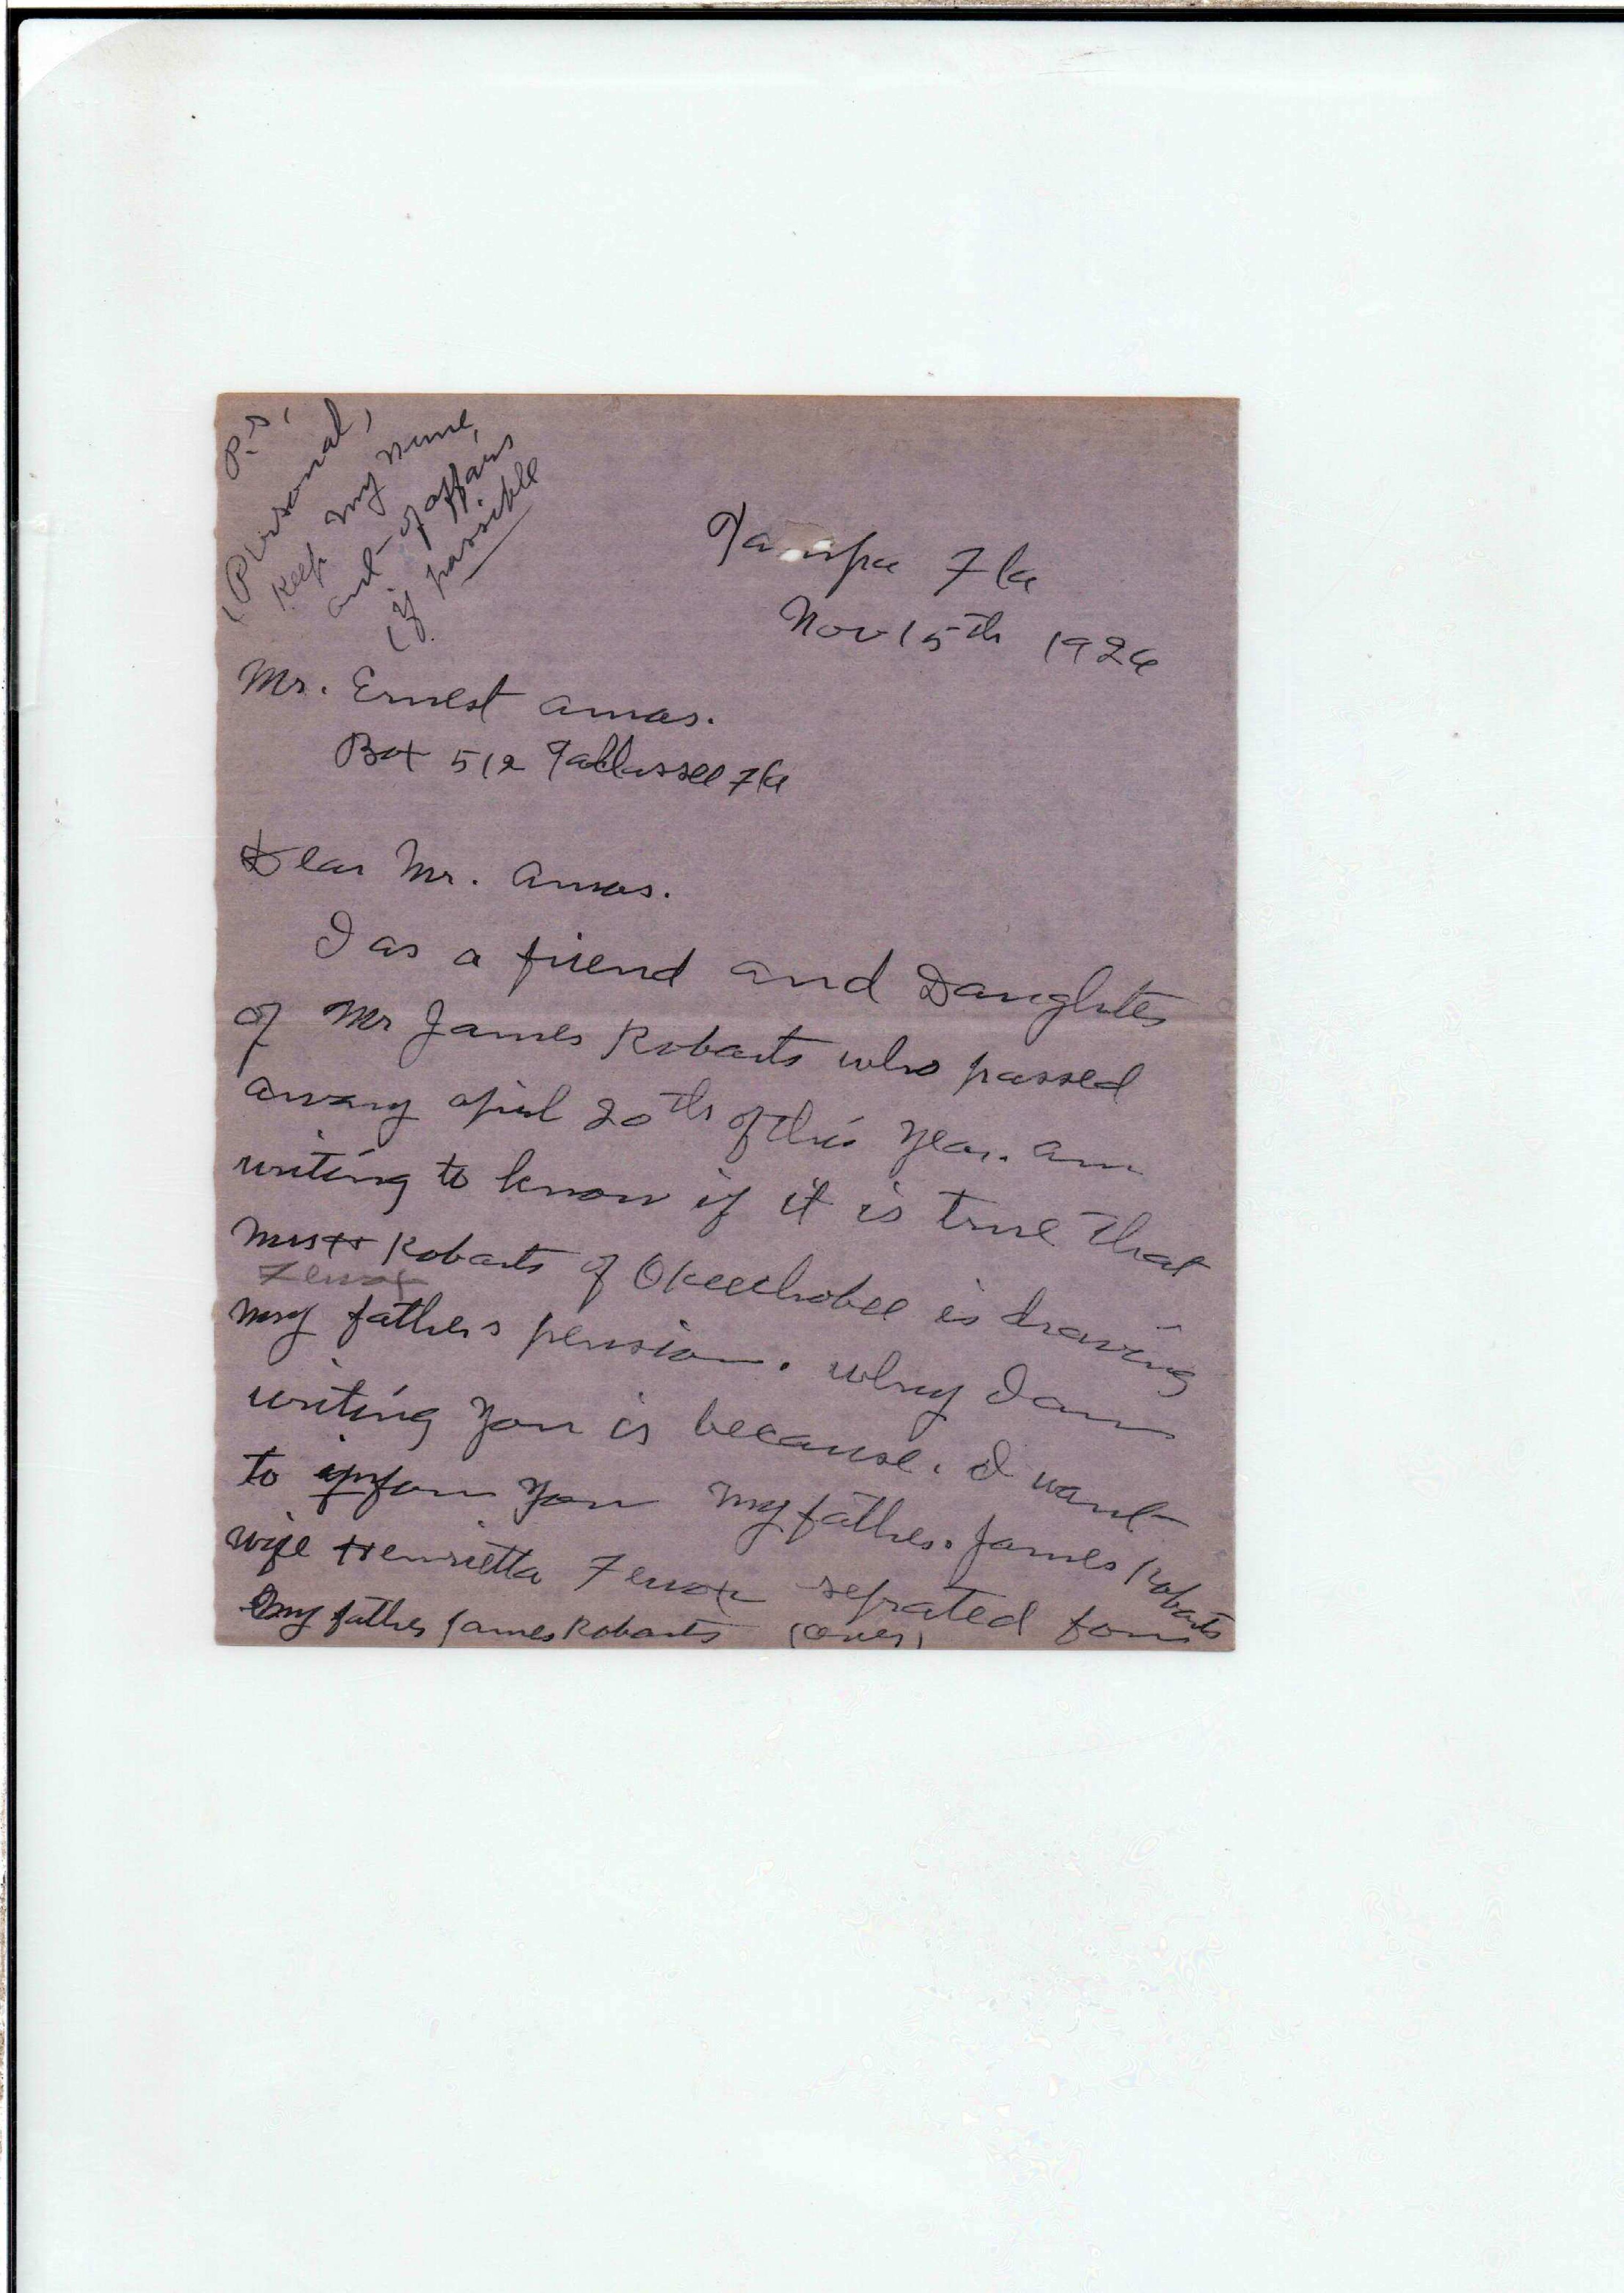 P.S.
(Personal,
Keep my name,
out of affairs
(if possible
Tampa Fla
Nov 15th 1926
Mr. Ernest Amos.
Box 512 Tallassee Fla
Dear Mr. Amos.
I as a friend and Daughter
of Mr James Robarts who passed
away april 20th of this year. am
writing to know if it is true that
Mrs H Robarts of Okeechobee is drawing
my fathers pension. why I am
writing you is because. I want
to inform you my father. James Robarts
wife Henrietta seprated from
my father James Robarts (over)